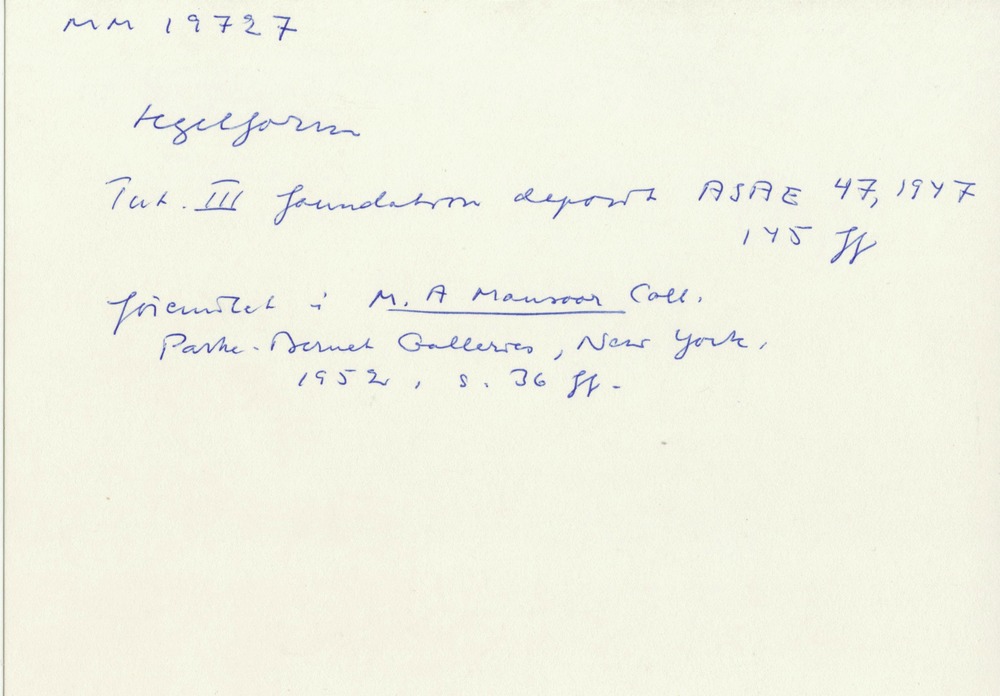 MM 19727
tegelform
Tut. III foundation deposit ASAE 47, 1947
145 ff
föremålet i M. A Mansoor Coll.
Parke-Bernet Galleries, New York,
1952, s. 36 ff.